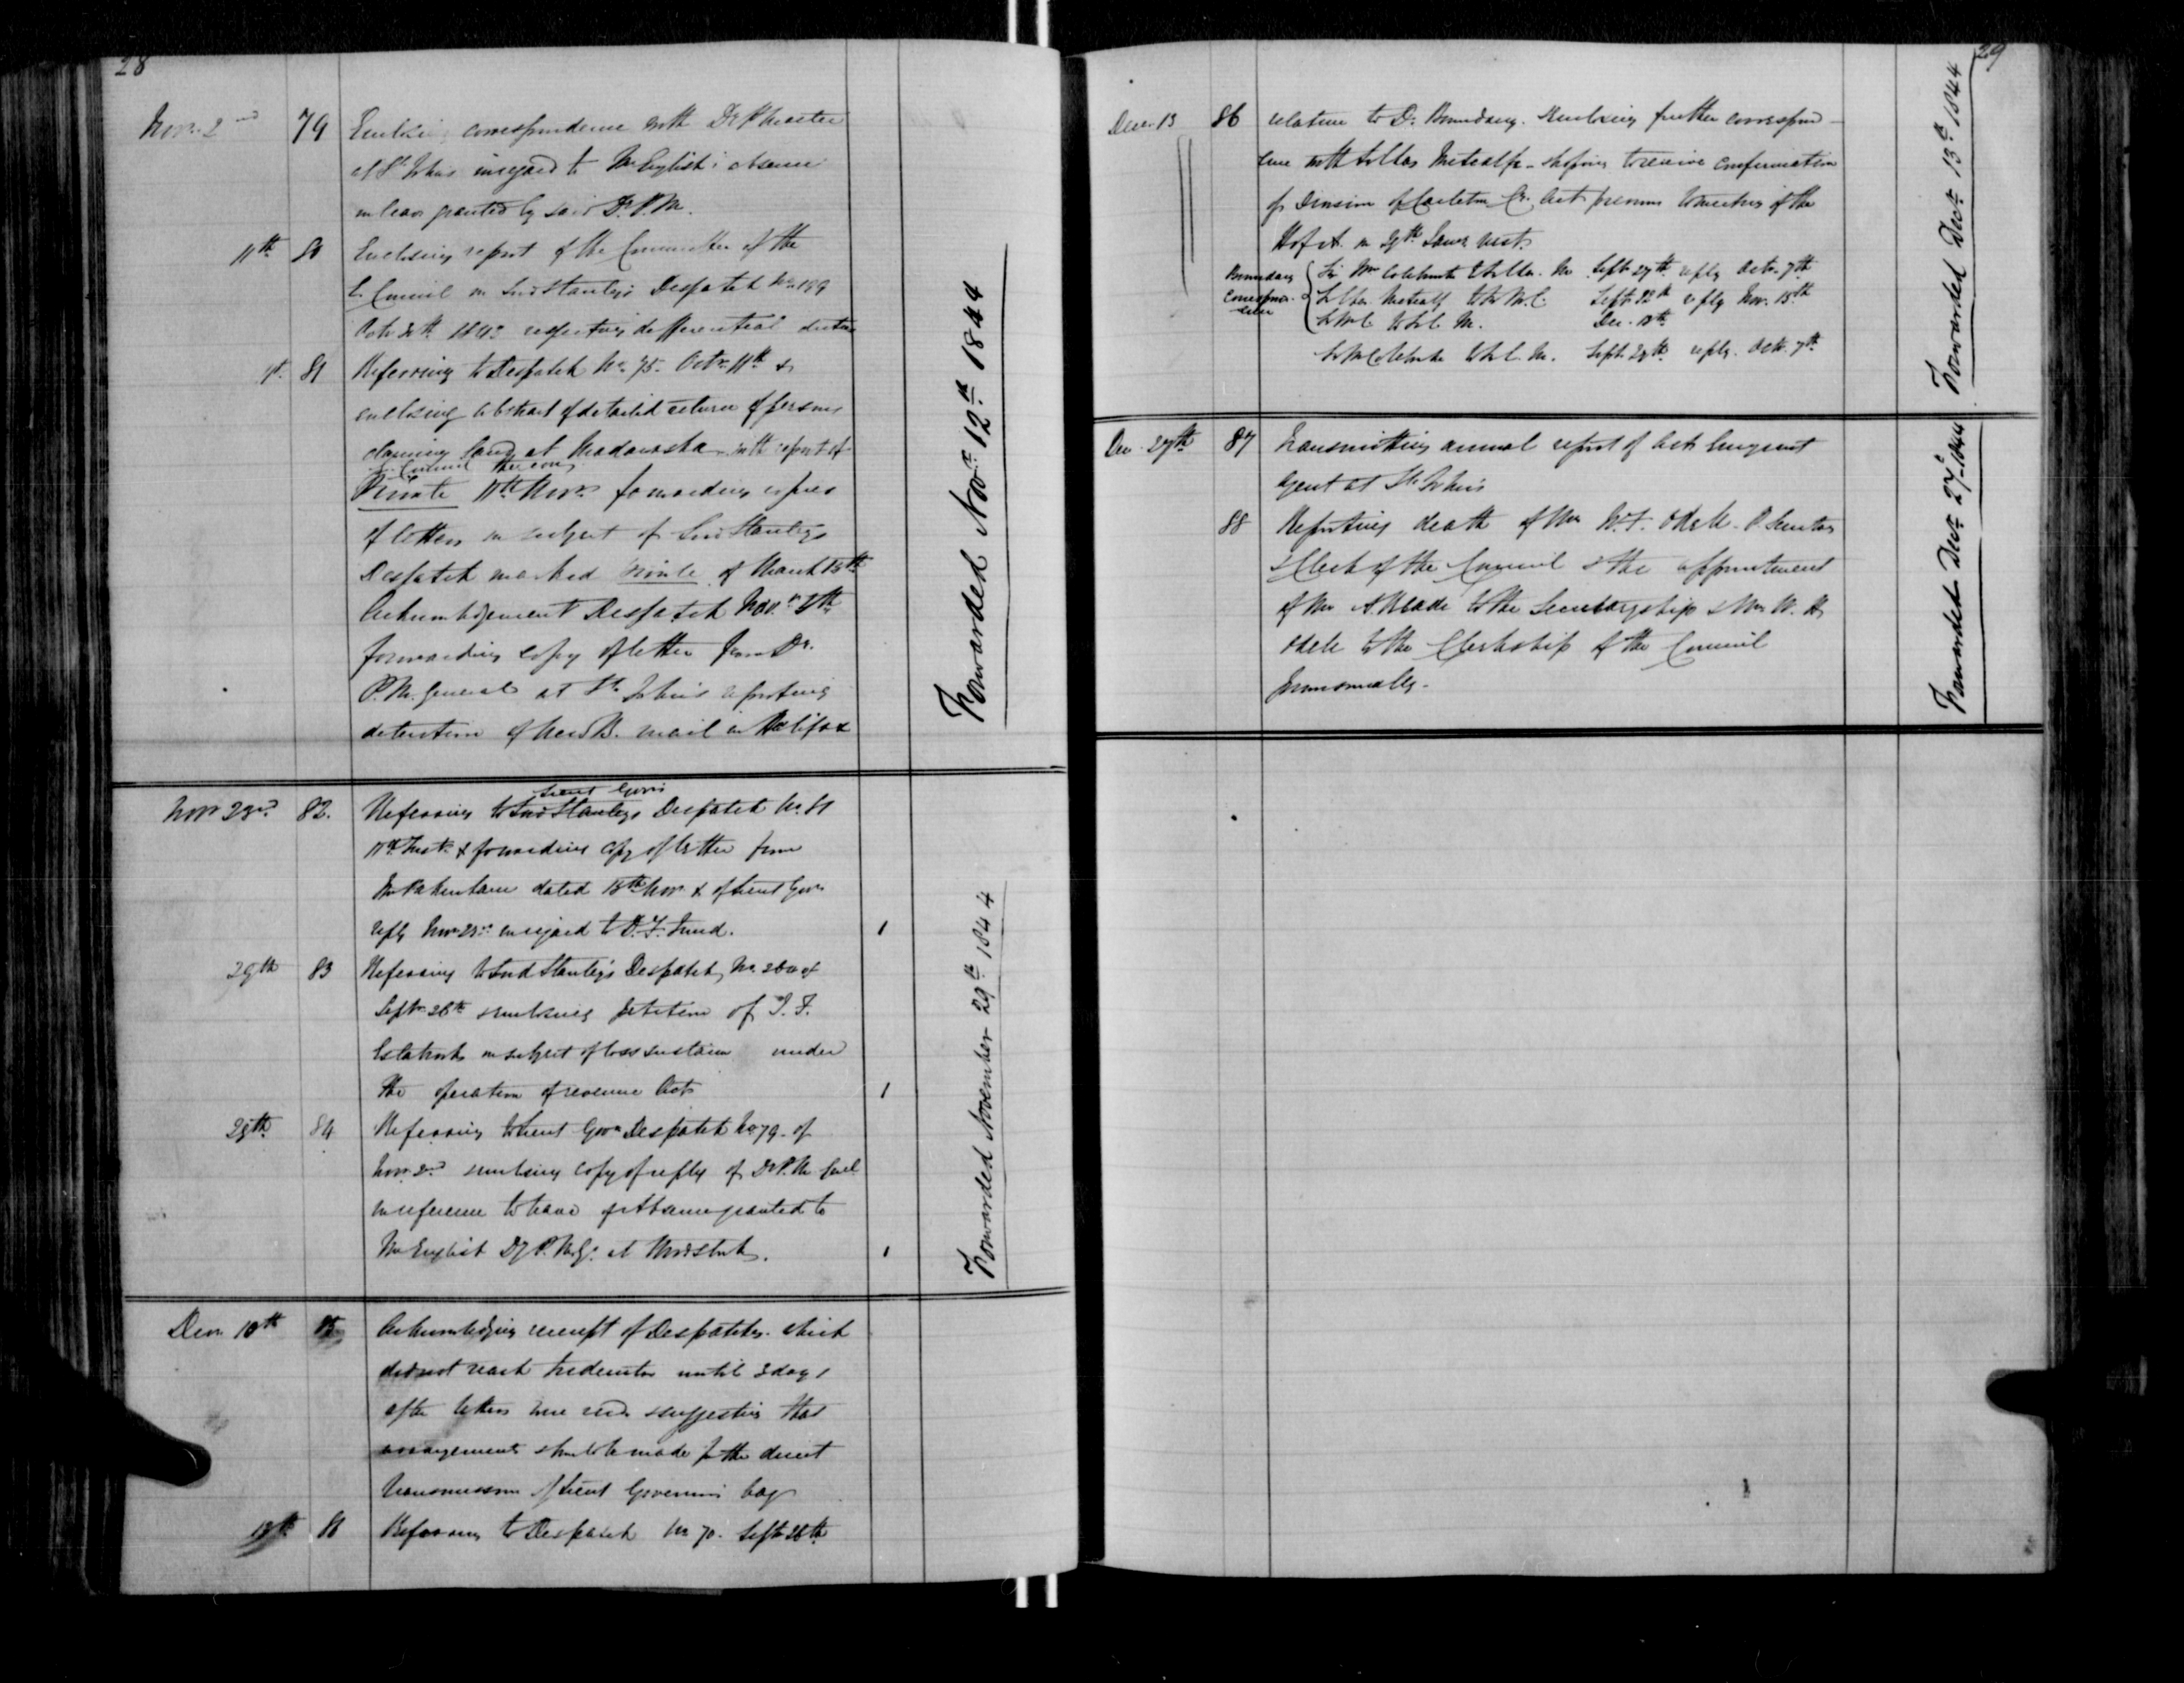 28
Nov. 2nd 79 Enclosing correspondence with Dr P Master
at St Johns in regard to Mr English's absence
on leave granted by said D. P. M.
11th 80 Enclosing report of the Committee of the
E. Council on Lord Stanley's Despatch No. 199
Octr 1843 respecting differential duties
11th 81 Referring to Despatch No. 75. Octr 11th &
enclosing abstract of detailed return of persons
claiming land at Madawaska with report of
Council thereon
Private 11th Novr forwarding copies
of letters on subject of Lord Stanleys
Despatch marked private of March 18th
Acknowledgement Despatch Novr
forwarding copy of letter from Dr.
P. M. General at St. John's reporting
detention of New B. mail in Halifax
Forwarded Novr 12th 1844
Novr 23rd 82. Referring to Lieut Govrs Lord Stanleys Despatch No. 81
11th Inst. & forwarding copy of letter from
Mr Pakenham dated 18th Nov & of Lieut Govrs
reply Nov 23rd in regard to D. T. Fund. 1
29th 83 Referring to Lord Stanley's Despatch No. of
Septr 26th & enclosing petition of
on subject of loss sustain under
the operation of revenue Acts 1
29th 84 Referring to Lieut Govrs Despatch No 79 of
Nov. 2nd enclosing copy of reply of D. P. M. Genl
in reference to leave of Absence granted to
Mr English Dy P. M. G. at Woodstock. 1
Forwarded November 29th 1844
Decr. 10th 85 Acknowledging receipt of Despatches which
did not reach Fredericton until 3 days
after letters were recd & suggesting that
arrangements should be made for the direct
transmission of Lieut Governors bag
13th 86 Referring to Despatch No 70. Septr 28th
29
Decr. 13 86 relative to D. Boundary. & enclosing further correspond-
ence with Sir Chas Metcalfe & hoping to receive confirmation
of Division of Carleton Co. Act previous to meeting of the
H of A. on 29th Jany next.
Boundary Correspondence
Sir Wm Colebrooke to Sir Chas. M. Septr 27th reply Octr. 7th
Sir Chas Metcalf to Sir W. C. Septr reply Nov. 18th
Sir W C to Sir C. M. Dec. 13th
Sir W Colebrooke to Sir C. M. Sept. 28th reply. Octr. 7th
Forwarded Decr 13th 1844
Dec. 27th 87 Transmitting annual report of Asst Emigrant
Agent at St. John's
88 Reporting death of Mr W. F. Odell P. Secretary
& Clerk of the Council & the appointment
of Mr A. Reade to the Secretaryship & Mr W. H.
Odell to the Clerkship of the Council
provisionally.
Forwarded Decr 27th 1844